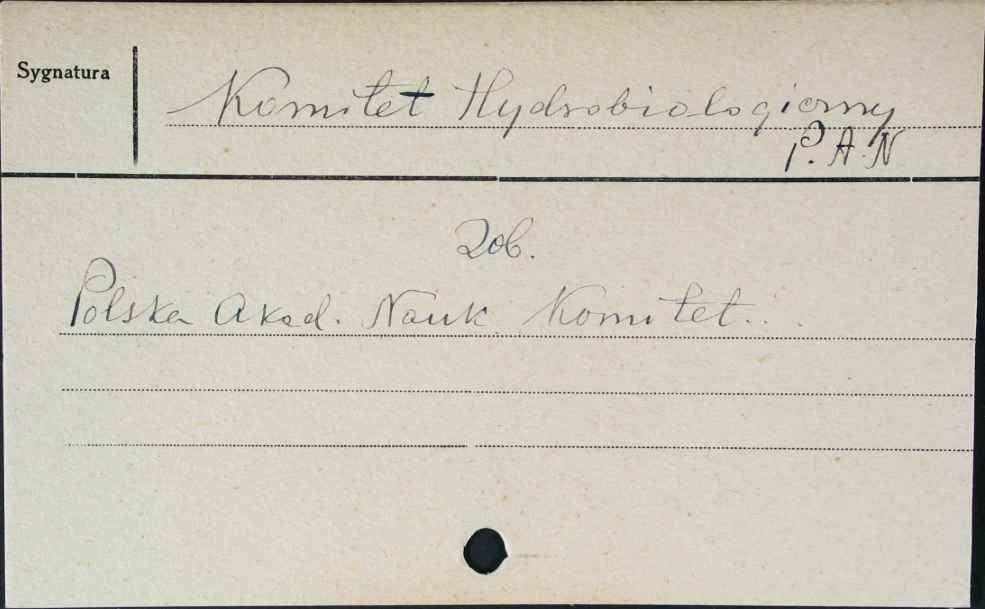 Sygnatura
Komitet Hydrobiologiczny
P.A.N
Zob.
Polska Akad. Nauk. Komitet...